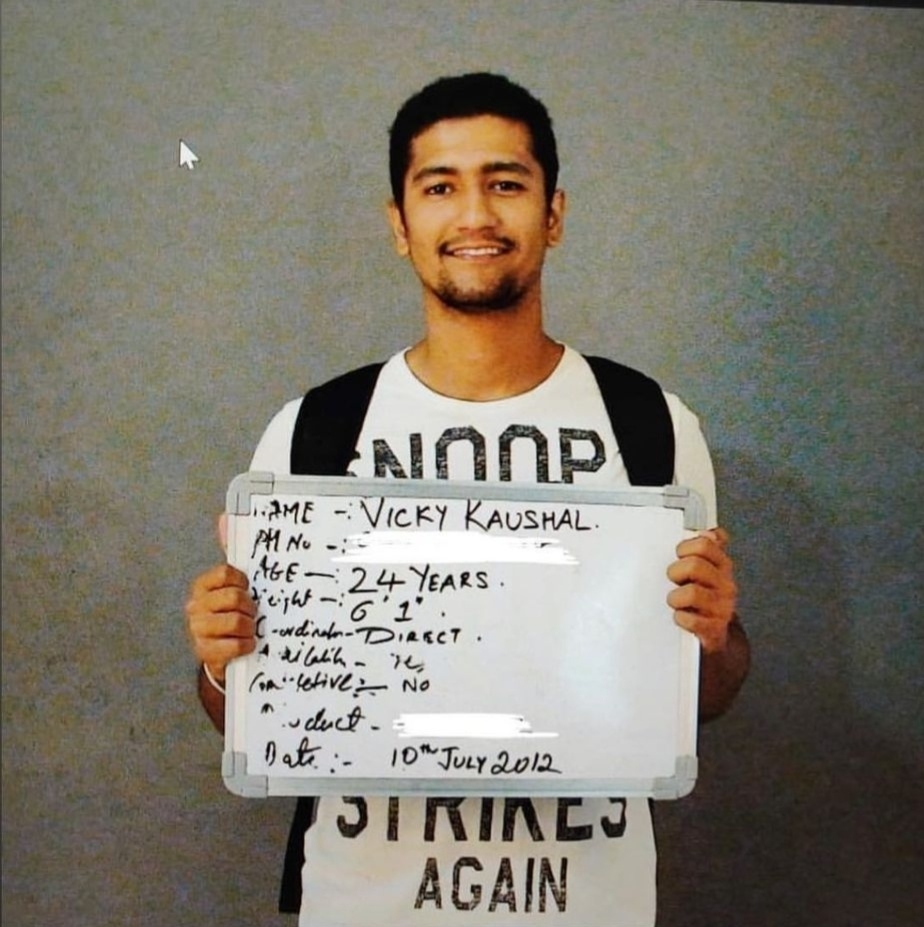 SNOOP
NAME -: VICKY KAUSHAL.
PH No -:
AGE -: 24 YEARS.
Height -: 6' 1".
Co-ordinator - DIRECT.
Availability - Yes
Competitive :- NO
Product -
Date :- 10th JULY 2012
STRIKES
AGAIN